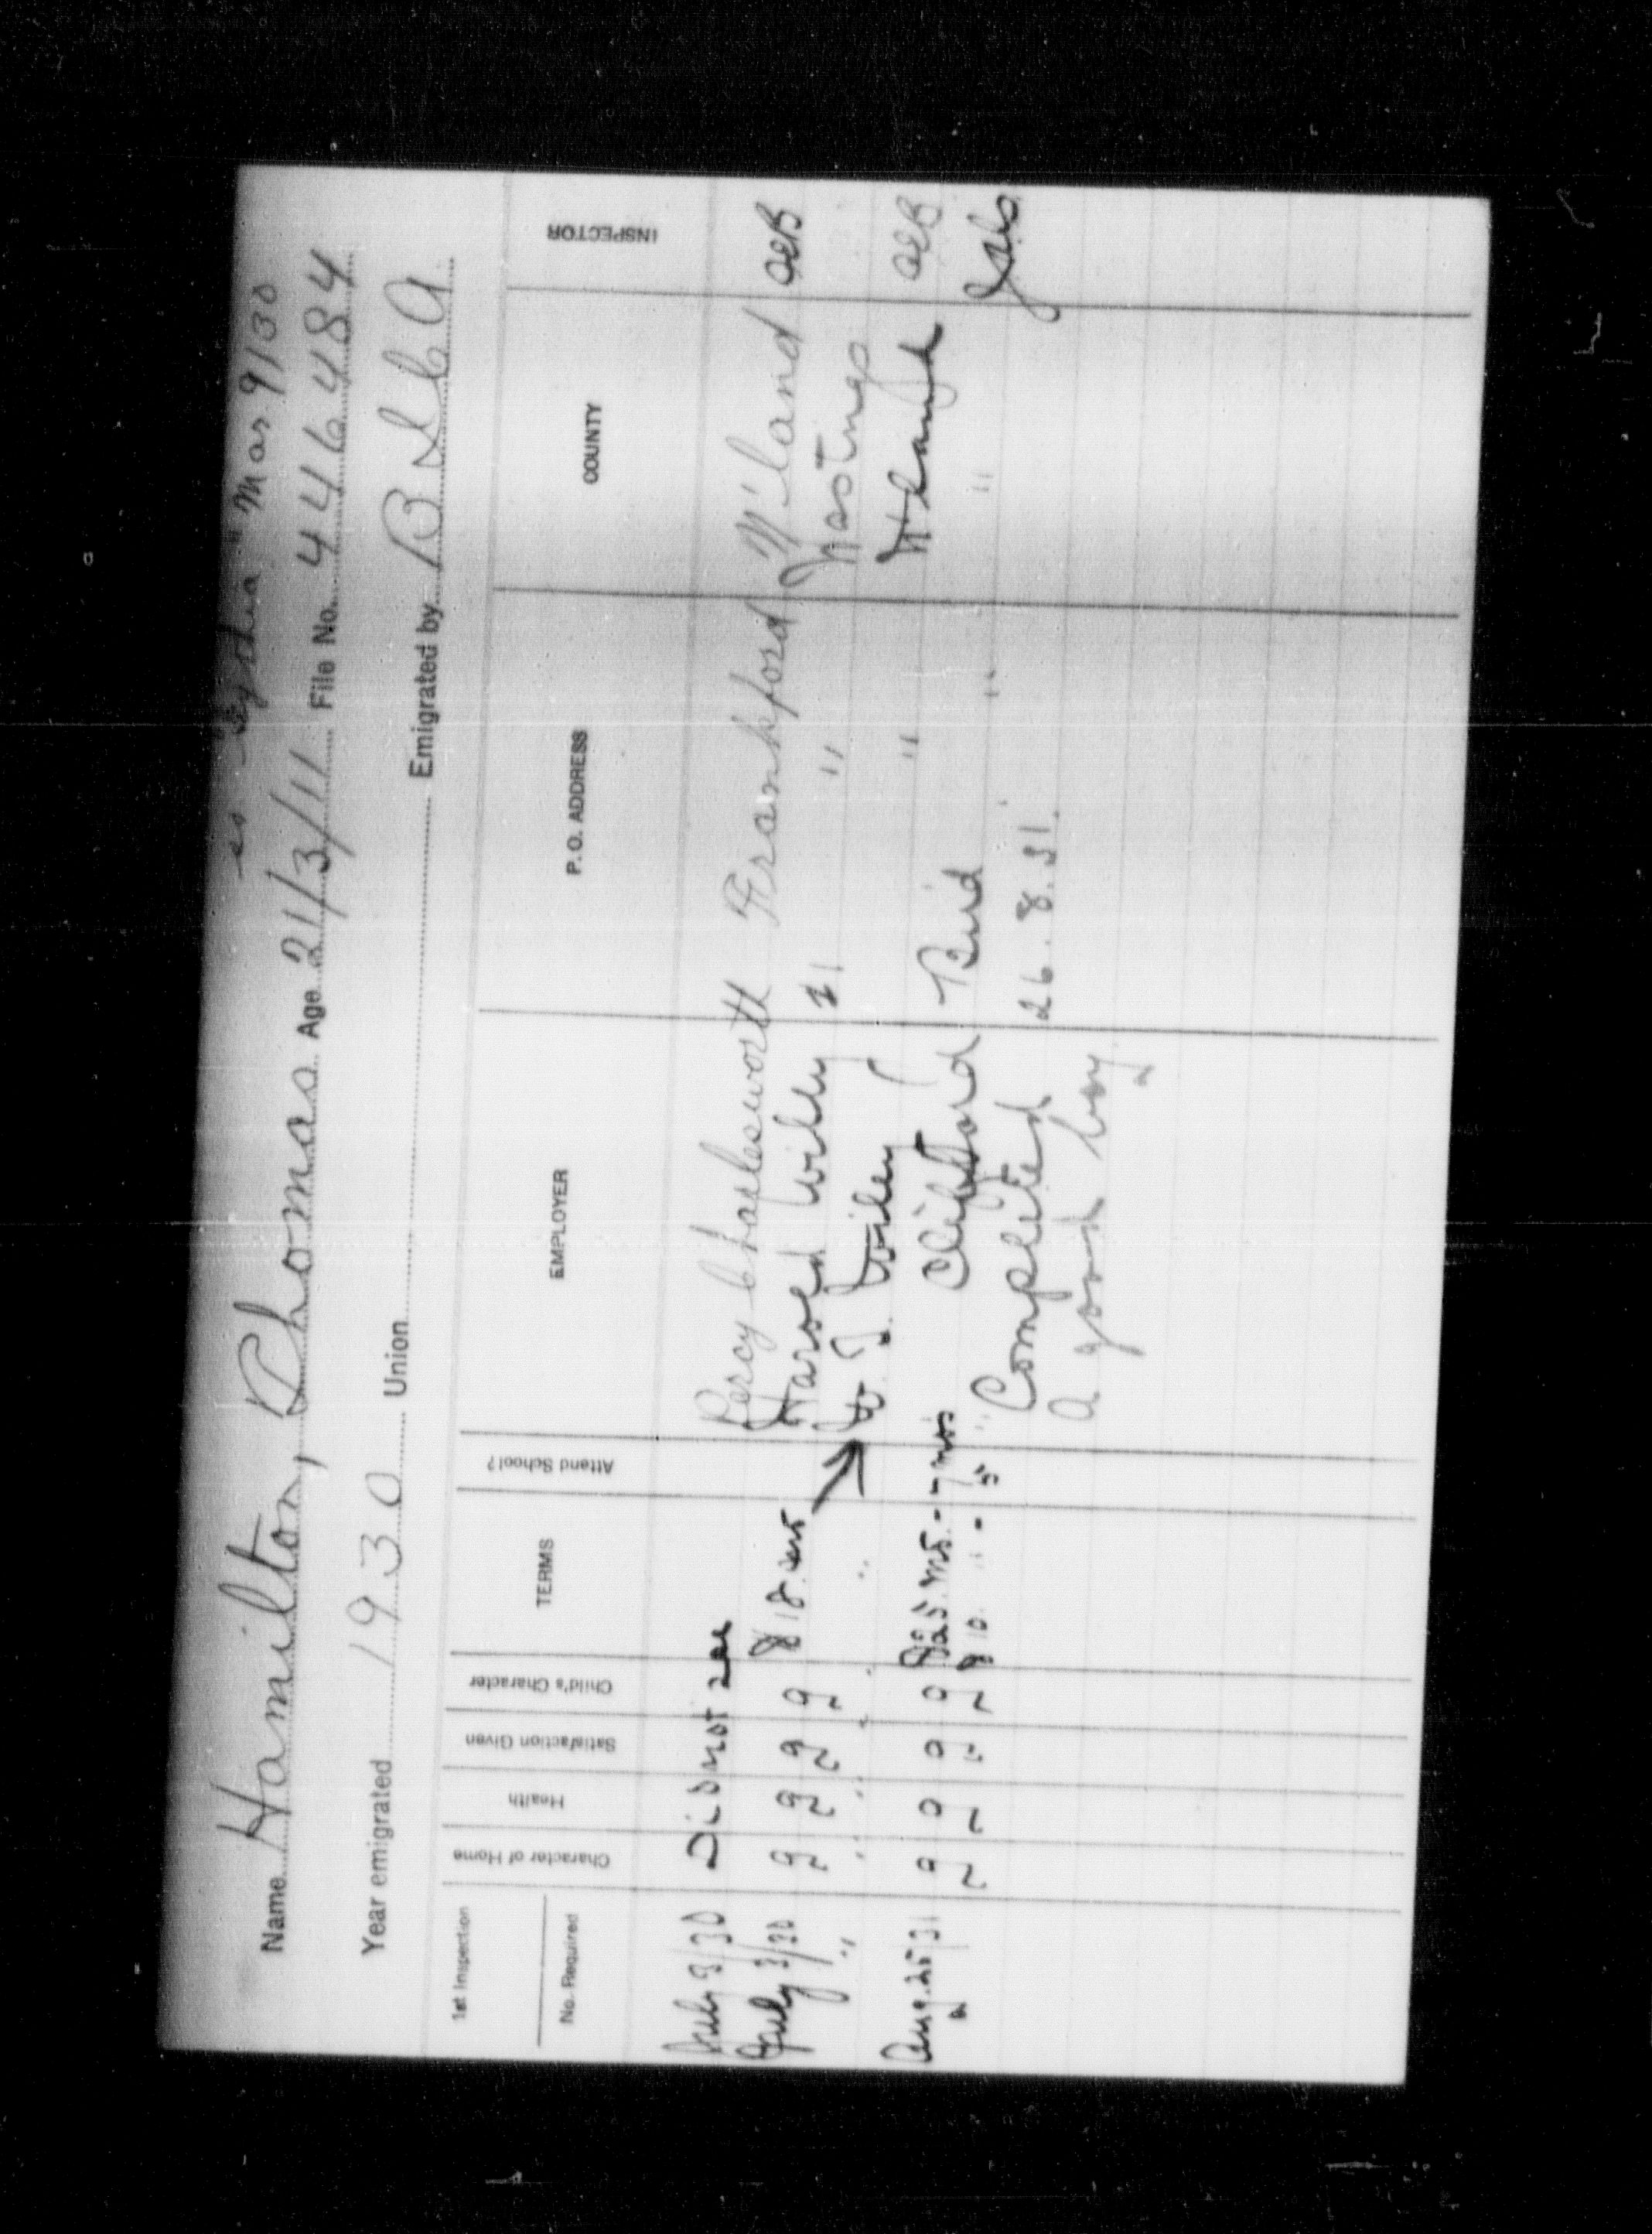 ss "Scythia" Mar 9/30
Name Hamilton, Thomas Age 21/3/11 File No. 446484
Year emigrated 1930 Union Emigrated by B I C A
1st Inspection
No. Required Character of Home Health Satisfaction Given Child's Character TERMS Attend School? EMPLOYER P. O. ADDRESS COUNTY INSPECTOR
July 3/30 Did not see Percy Charlesworth Frankford N'land OEB
July 3/30 g g g g $18. Harold Wiley " Hastings
" " " " " " W J Wiley " N'land OEB
Aug. 25 31 g g g g $25. mo. - 7 mos Clifford Bird "
$10 " - 5 "
Completed 26.8.31.
A good boy